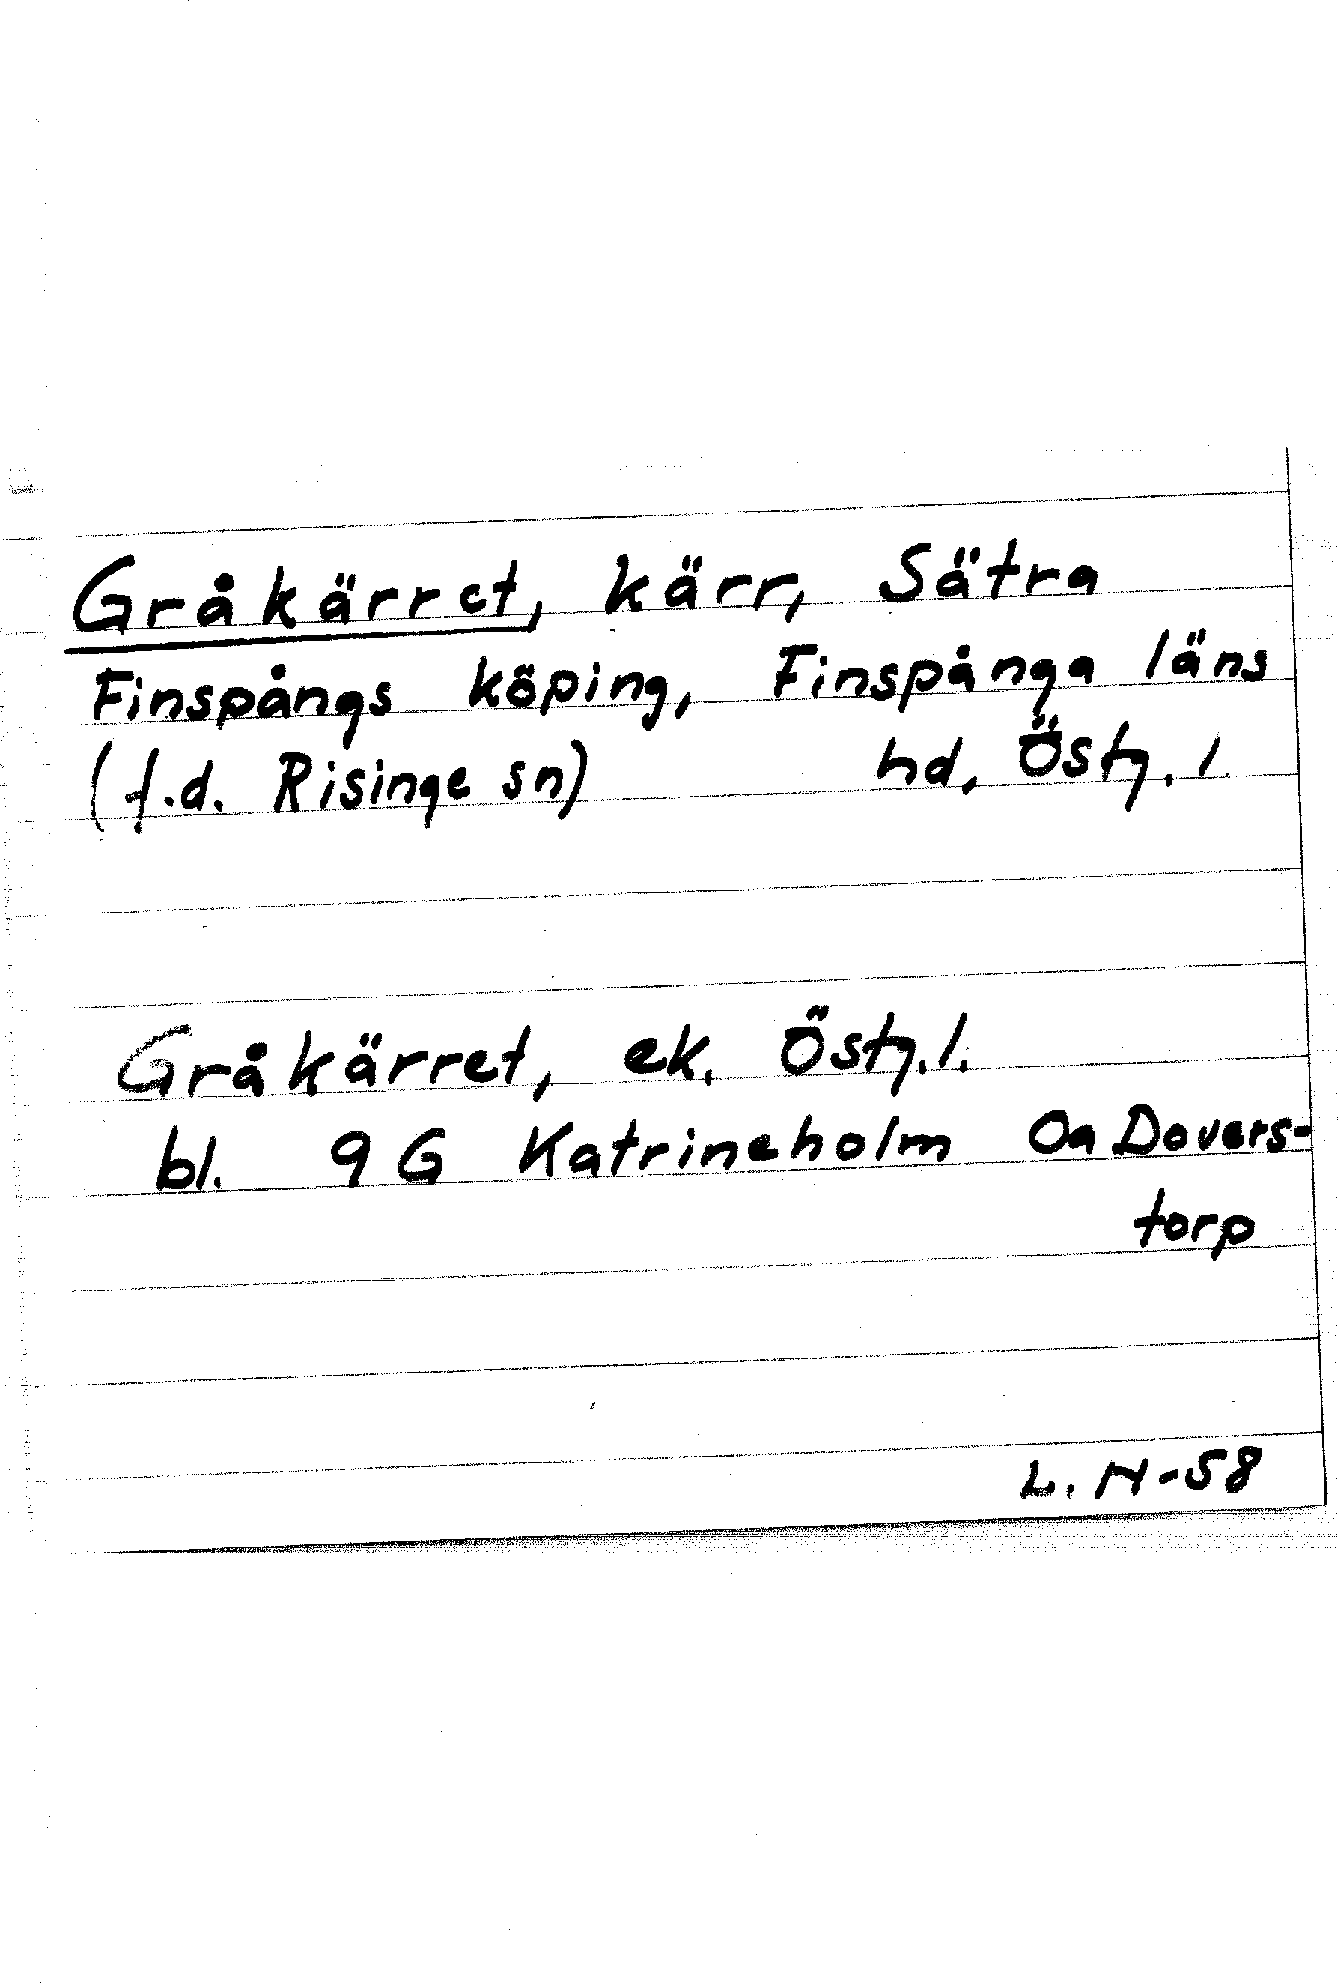 Gråkärret, kärr, Sätra
Finspångs köping, Finspånga läns
(f.d. Risinge sn) hd, Östg. l.
Gråkärret, ek. Östg. l.
bl. 9 G Katrineholm 0a Dovers-
torp
L. N-58